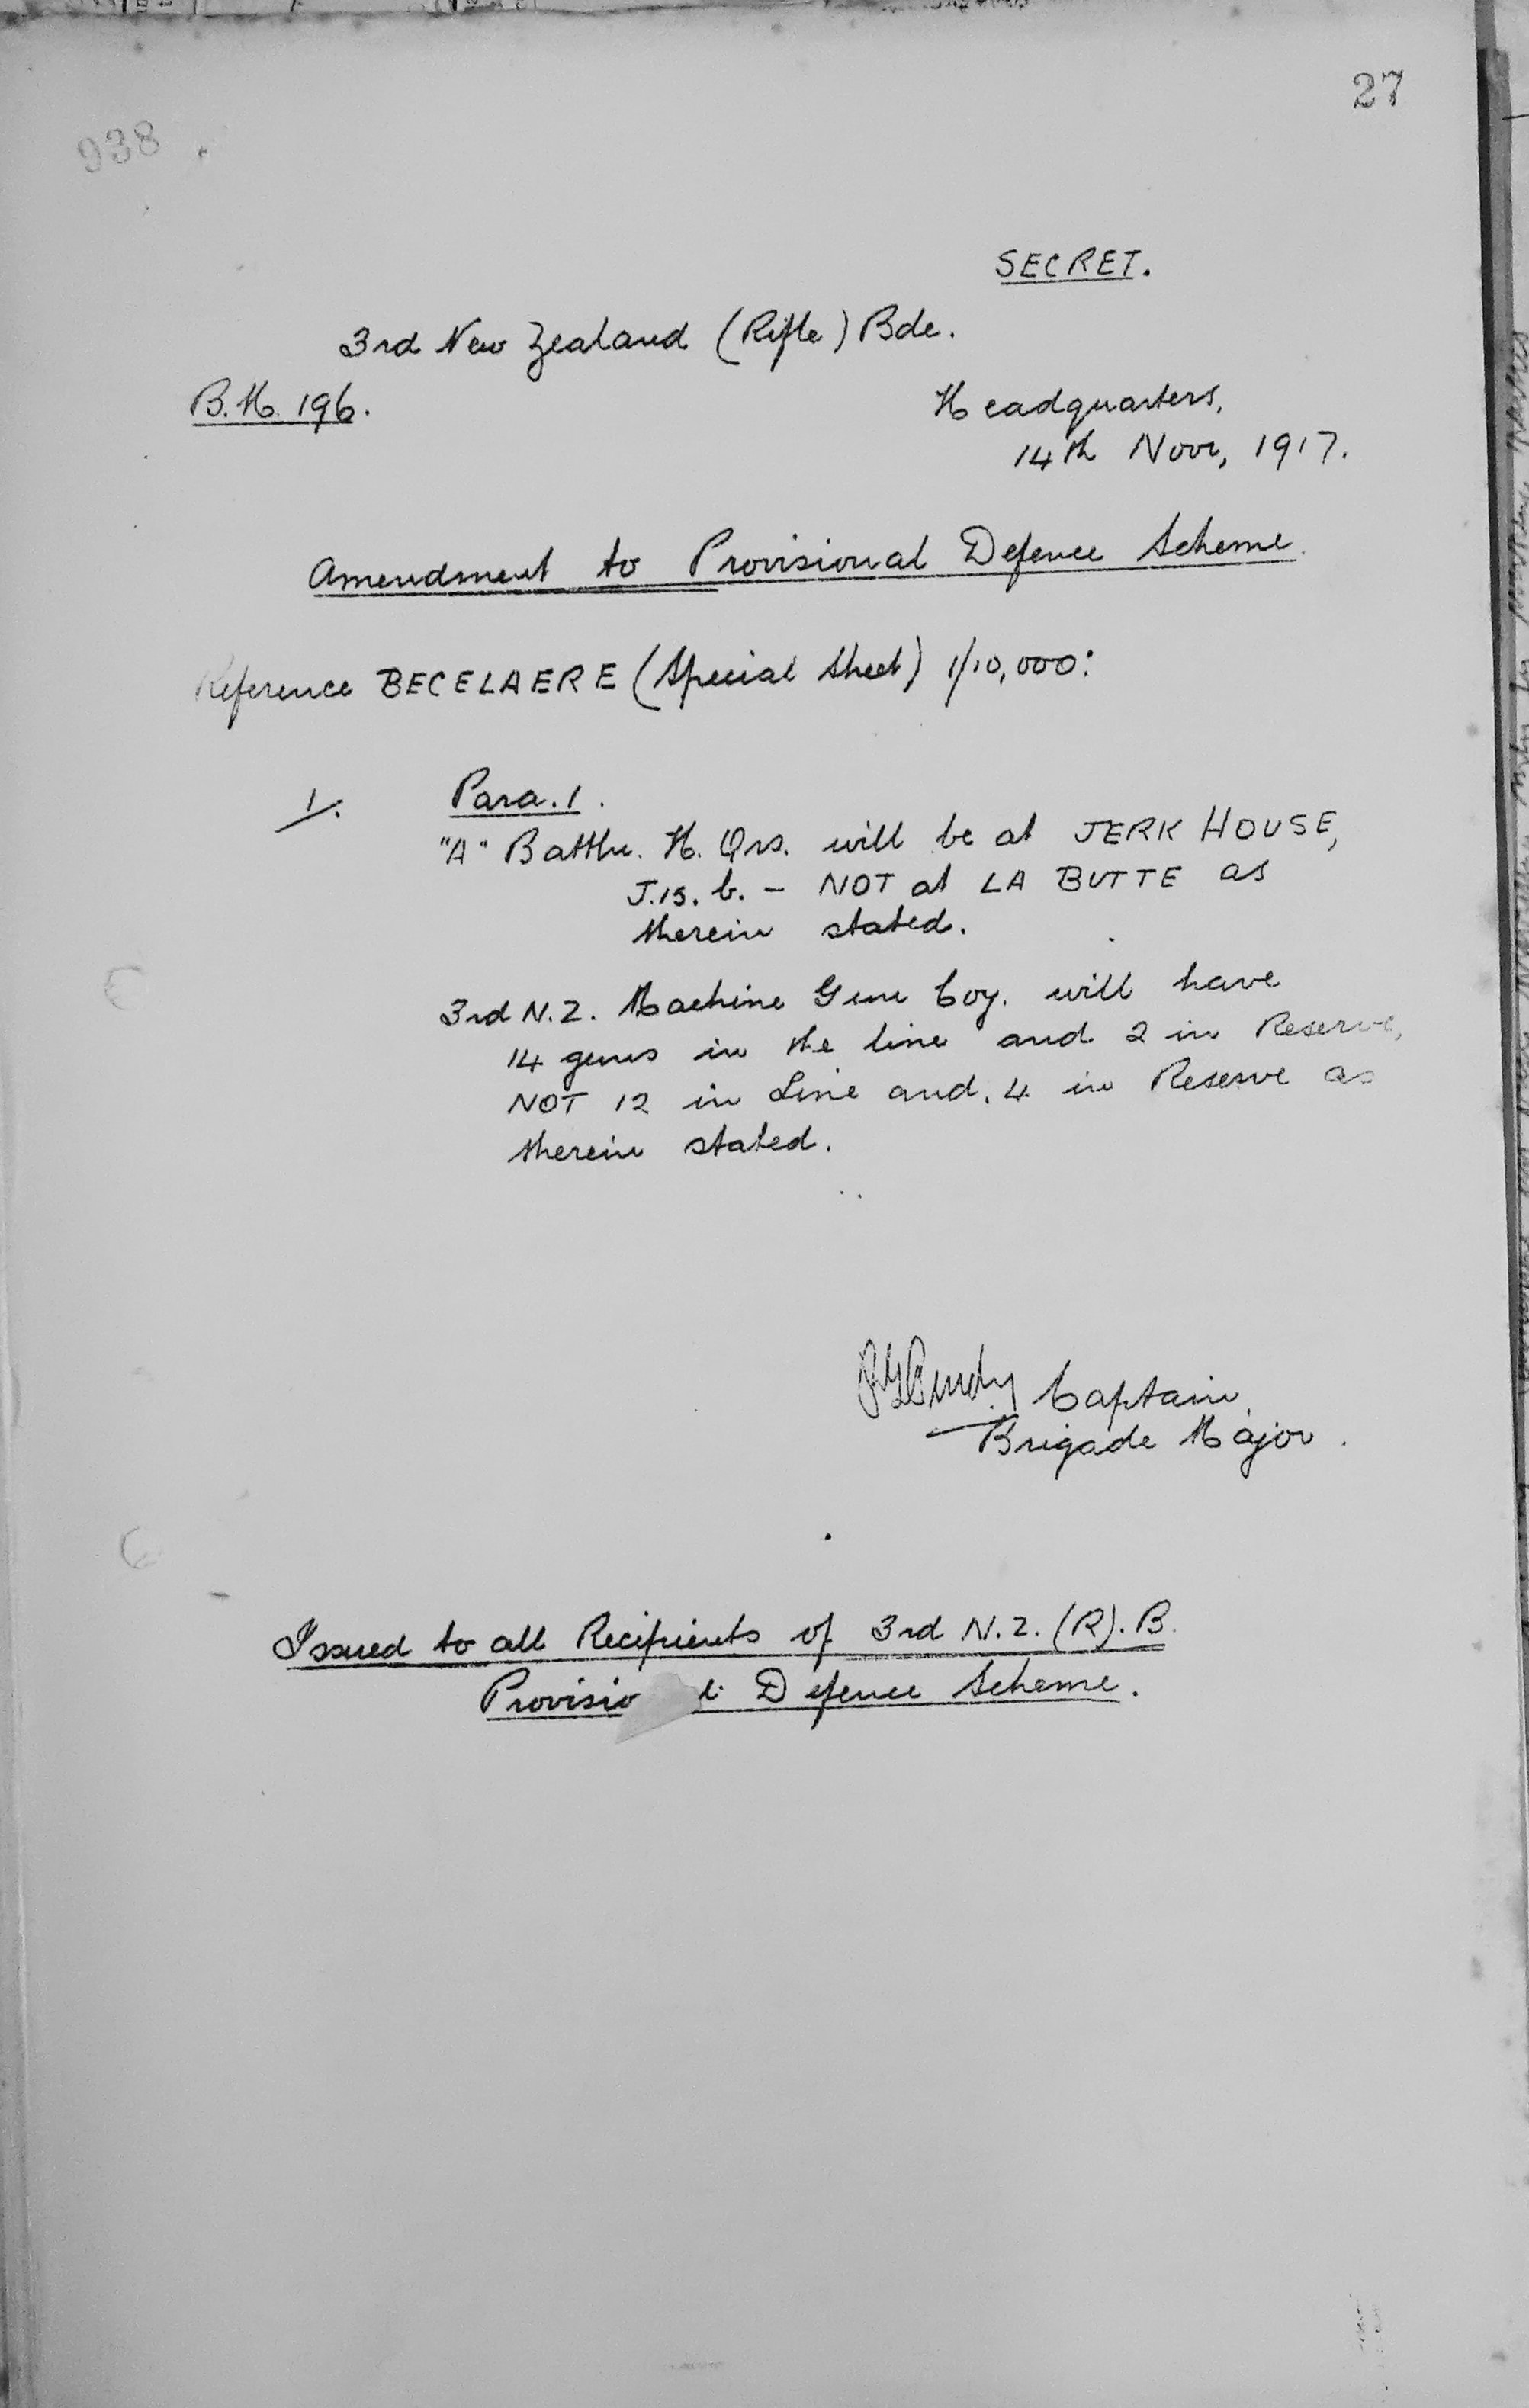 27
938
SECRET.
3rd New Zealand (Rifle) Bde.
B.M. 196.
Headquarters,
14th Novr, 1917.
Amendment to Provisional Defence Scheme.
Reference BECELAERE (Special Sheet) 1/10,000:
1/. Para. 1.
"A" Battln. H. Qrs. will be at JERK HOUSE,
J.15.b. - NOT at LA BUTTE as
therein stated.
3rd N.Z. Machine Gun Coy. will have
14 guns in the line and 2 in Reserve,
NOT 12 in Line and 4 in Reserve as
therein stated.
Captain,
Brigade Major.
Issued to all Recipients of 3rd N.Z.(R).B.
Provisio l Defence Scheme.